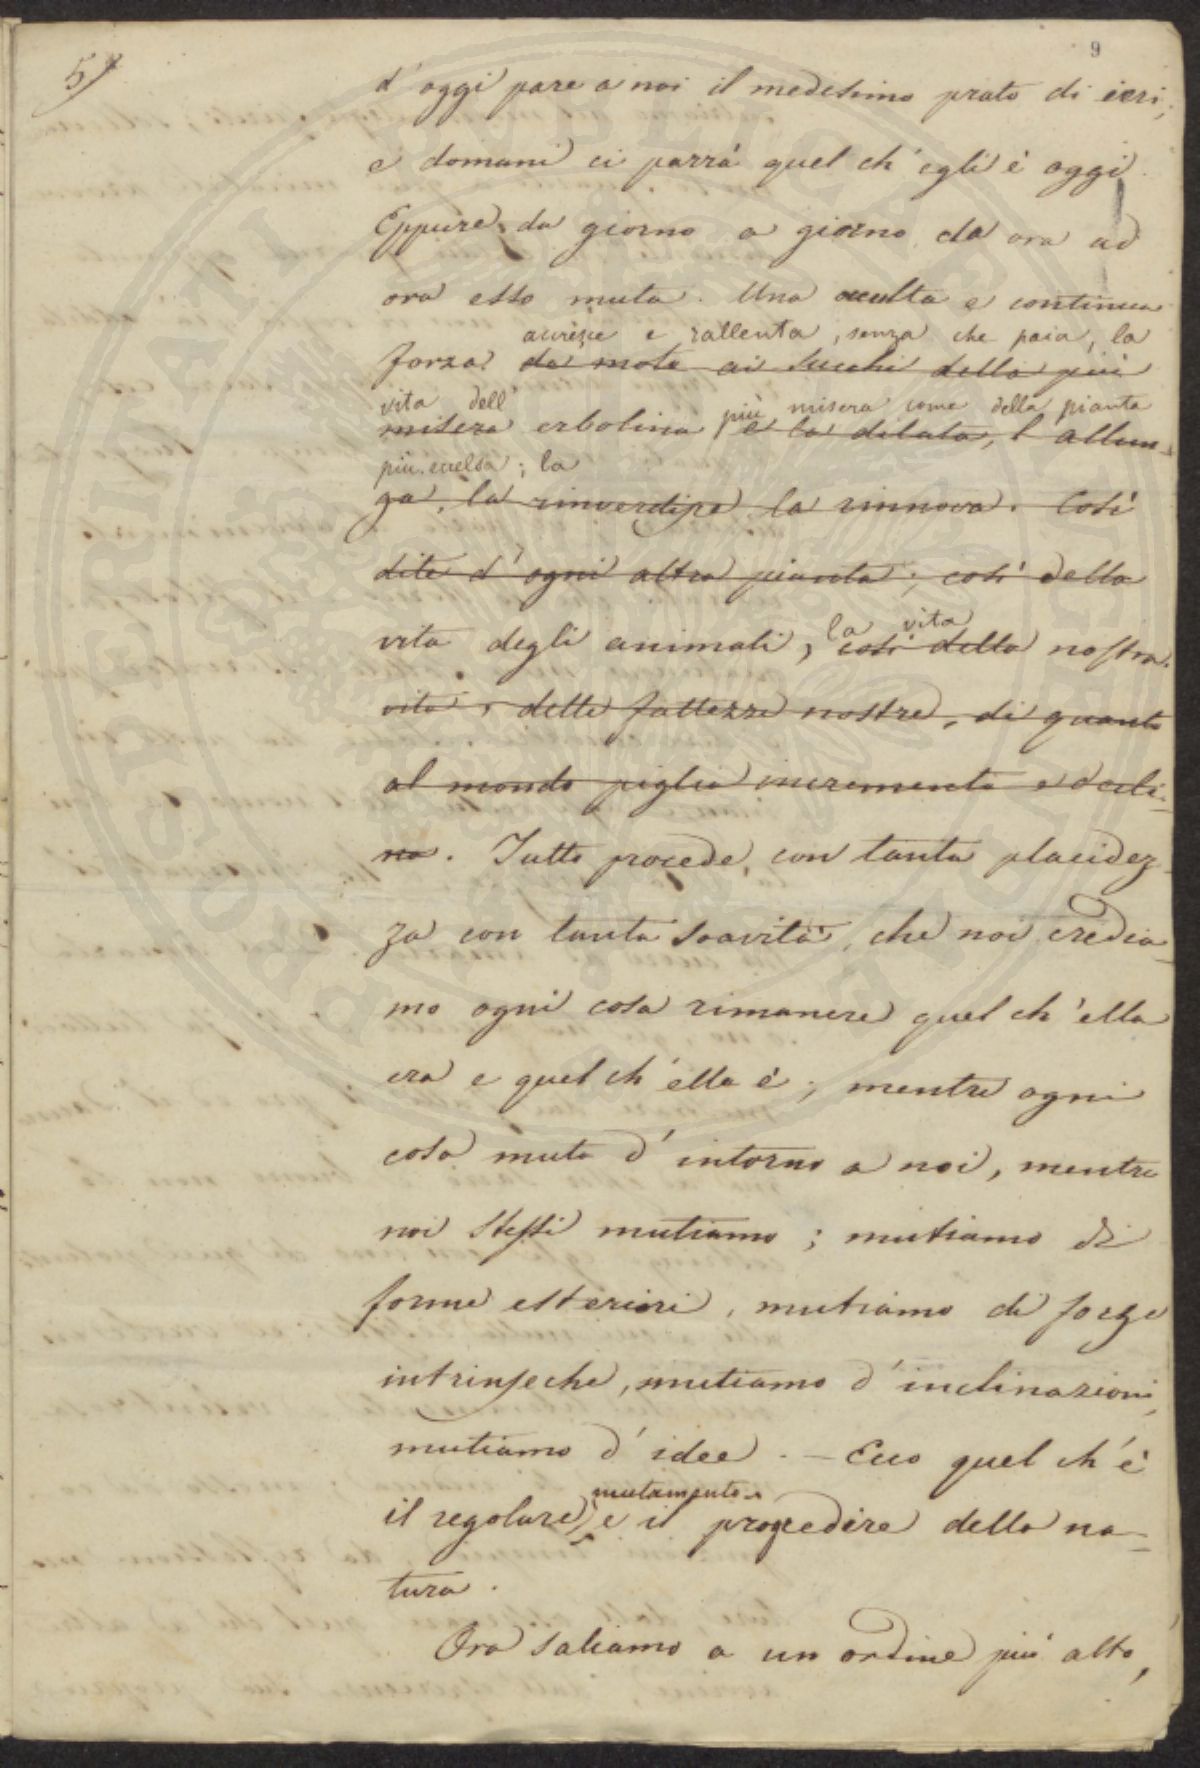 9
5/
d'oggi pare a noi il medesimo prato di ieri,
e domani ci parrà quel ch'egli è oggi.
Eppure da giorno a giorno, da ora ad
ora esso muta. Una occulta e continua
accresce e rallenta, senza che paia, la
forza da moto ai succhi della più
vita dell' più misera come della pianta
misera erbolina e la dilata, l'allun-
più eccelsa; la
ga, la rinverdisce la rinnova. Così
dite d'ogni altra pianta; così della
la vita
vita degli animali, così della nostra
vita, delle fattezze nostre, di quanto
al mondo piglia incremento e decli-
na. Tutto procede, con tanta placidez-
za con tanta soavità, che noi credia-
mo ogni cosa rimanere quel ch'ella
era e quel ch'ella è; mentre ogni
cosa muta d'intorno a noi, mentre
noi stessi mutiamo; mutiamo di
forme esteriori, mutiamo di forze
intrinseche, mutiamo d'inclinazioni,
mutiamo d'idee. — Ecco quel ch'è
mutamento
il regolare, e il procedire della na-
tura.
Ora saliamo a un ordine più alto,
PROSPERITATI PUBLICAE